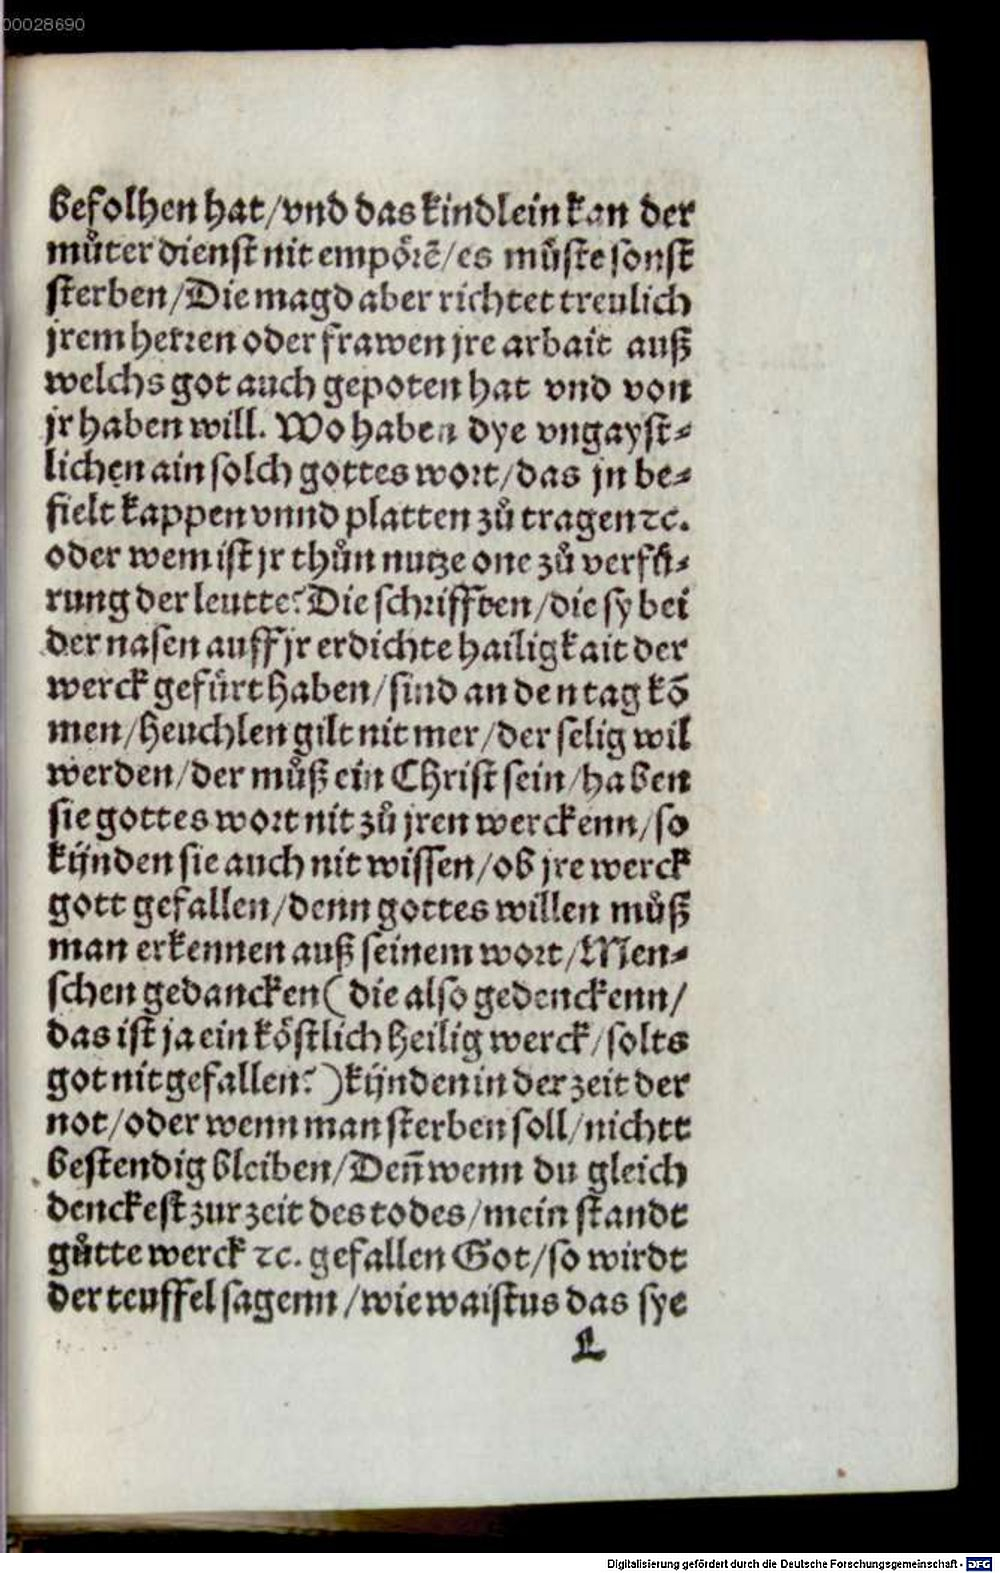 00028690
befolhen hat/vnd das kindlein kan der
muͤter dienst nit empoͤrē/es muͤste sonst
sterben/Die magd aber richtet treulich
jrem herren oder frawen jre arbait auß
welchs got auch gepoten hat vnd von
jr haben will. Wo haben dye vngayst⸗
lichen ain solch gottes wort/das jn be⸗
fielt kappen vnnd platten zů tragen ⁊c.
oder wem ist jr thůn nutze one zů verfuͤ⸗
rung der leutte? Die schrifften/die sy bei
der nasen auff jr erdichte hailigkait der
werck gefuͤrt haben/sind an den tag kō
men/heuchlen gilt nit mer/der selig wil
werden/der můß ein Christ sein/haben
sie gottes wort nit zů jren werckenn/so
kijnden sie auch nit wissen/ob jre werck
gott gefallen/denn gottes willen můß
man erkennen auß seinem wort/Men⸗
schen gedancken (die also gedenckenn/
das ist ja ein koͤstlich heilig werck/solts
got nit gefallen?) kijnden in der zeit der
not/oder wenn man sterben soll/nichtt
bestendig bleiben/Den̄ wenn du gleich
denckest zur zeit des todes/mein standt
guͤtte werck ⁊c. gefallen Got/so wirdt
der teuffel sagenn/wie waistus das sye
Digitalisierung gefördert durch die Deutsche Forschungsgemeinschaft - DFG